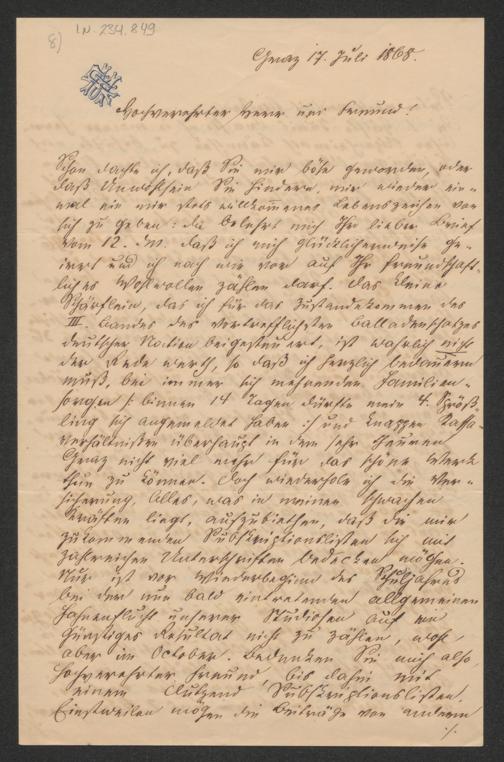 8)
I.N. 234.849
Graz 17. Juli 1868.
Hochverehrter Herr und Freund!
Schon dachte ich, daß Sie mir böse geworden, oder
daß Unwohlsein Sie hindere, mir wieder ein-
mal ein mir stets willkommenes Lebenszeichen von
sich zu geben: da belehrt mich Ihr lieber Brief
vom 12. d. M. daß ich mich glücklicherweise ge-
irrt und ich nach wie vor auf Ihr freundschaft-
liches Wohlwollen zählen darf. Das kleine
Schärflein, das ich für das Zustandekommen des
III. Bandes des vortrefflichsten Balladenschatzes
deutscher Nation beigesteuert, ist wahrlich nicht
der Rede werth, so daß ich herzlich bedauern
muß, bei immer sich mehrenden Familien-
sorgen /: binnen 14 Tagen dürfte mein 4. Spröß-
ling sich angemeldet haben :/ und knappen Kassa-
verhältnissen überhaupt in dem sehr theuren
Graz nicht viel mehr für das schöne Werk
thun zu können. Doch wiederhole ich die Ver-
sicherung, Alles, was in meinen schwachen
Kräften liegt, aufzubiethen, daß die mir
zukommenden Subskriptionslisten sich mit
zahlreichen Unterschriften bedecken mögen.
Nur ist vor Wiederbeginn des Schuljahres
bei der nun bald eintretenden allgemeinen
Fahnenflucht unserer Studiosen auf ein
günstiges Resultat nicht zu zählen, wohl
aber im October. Bedenken Sie mich also,
hochverehrter Freund, bis dahin mit
einem Dutzend Subskriptionslisten.
Einstweilen mögen die Beiträge von anderen
./.